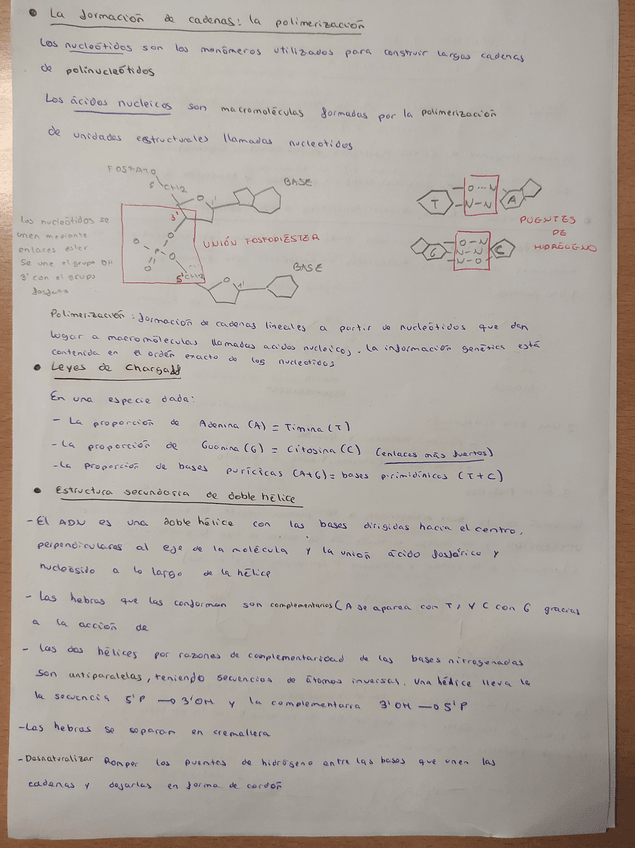 La formación de cadenas: la polimerización
Los nucleótidos son los monómeros utilizados para construir largas cadenas
de polinucleótidos
Los ácidos nucleicos son macromoléculas formadas por la polimerización
de unidades estructurales llamadas nucleotidos
FOSFATO
5' CH2
O
1'
BASE
3'
Los nucleótidos se
unen mediante
enlaces ester
Se une el grupo OH
3' con el grupo
fosfato
UNIÓN FOSFODIÉSTER
O
O
P
O
O
5' CH2
O
1'
BASE
T
O ... N
N - N
A
G
O - N
N - N
N - O
C
PUENTES
DE
HIDRÓGENO
Polimerización: formación de cadenas lineales a partir de nucleótidos que dan
lugar a macromoléculas llamadas acidos nucleicos. La información genética está
contenida en el orden exacto de los nucleotidos
Leyes de Chargaff
En una especie dada:
- La proporción de Adenina (A) = Timina (T)
- La proporción de Guanina (G) = Citosina (C) (enlaces más fuertos)
- La proporción de bases puricicas (A+G) = bases pirimidínicas (T+C)
Estructura secundaria de doble hélice
- El ADN es una doble hélice con las bases dirigidas hacia el centro,
perpendiculares al eje de la molécula y la unión ácido fosfórico y
nucleósido a lo largo de la hélice
- Las hebras que las conforman son complementarias (A se aparea con T, y C con G gracias
a la acción de
- Las dos hélices por razones de complementaridad de las bases nitrogenadas
son antiparalelas, teniendo secuencias de átomos inversas. Una hélice lleva la
la secuencia 5'P → 3'OH y la complementaria 3'OH → 5'P
- Las hebras se separan en cremallera
- Desnaturalizar Romper los puentes de hidrógeno entre las bases que unen las
cadenas y dejarlas en forma de cordón